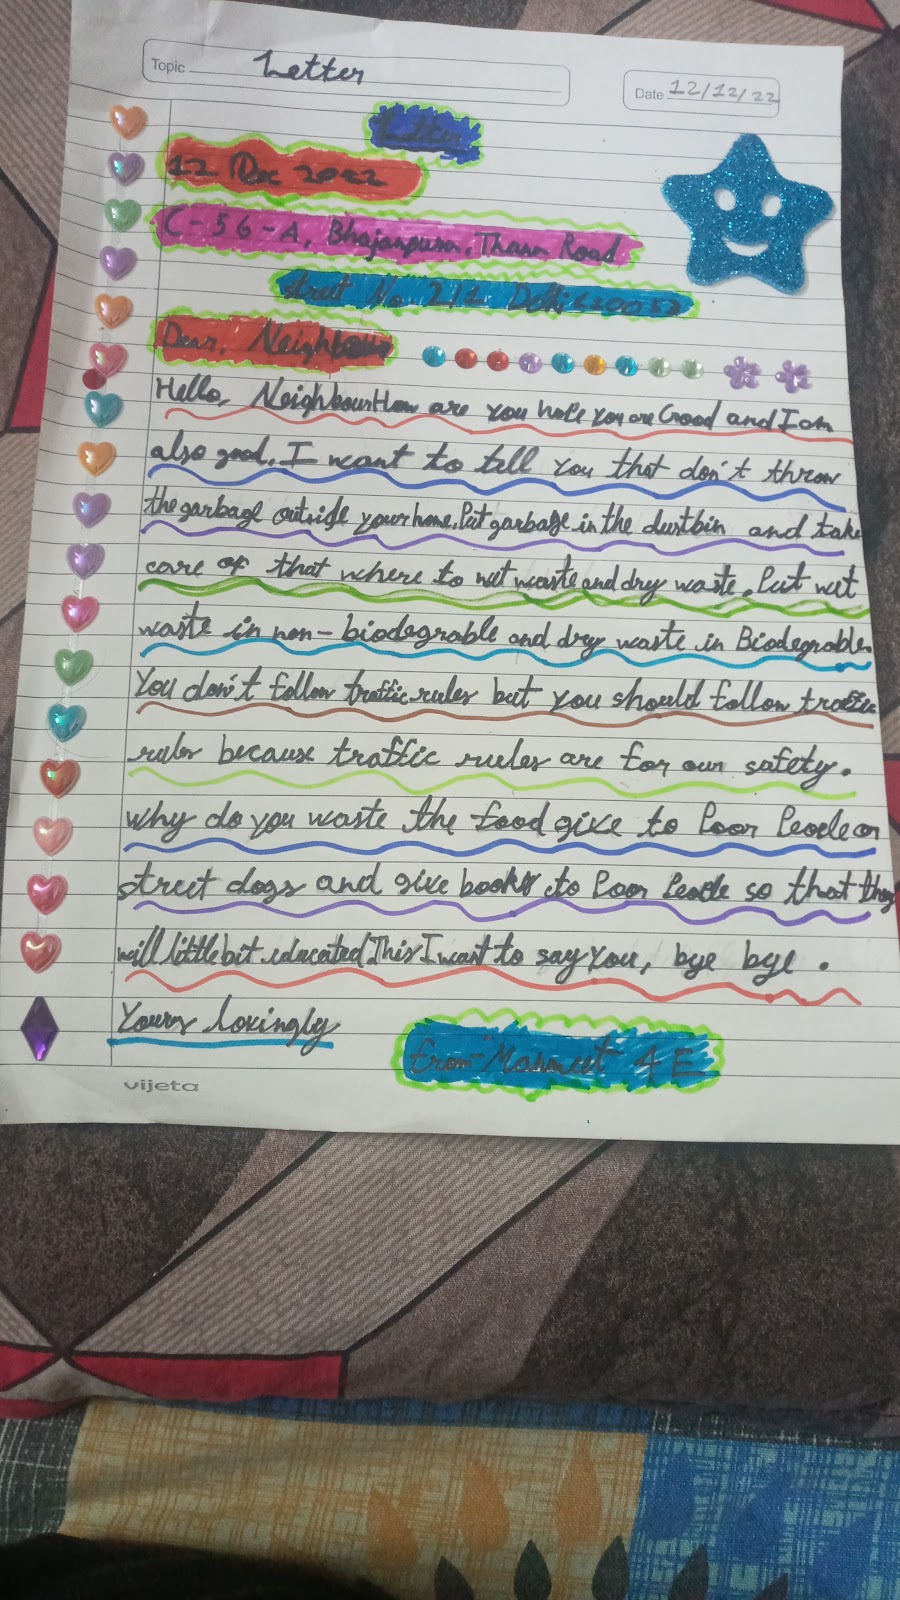 Topic Letter
Date 12/12/22
Letter
12 Dec 2022
C-56-A, Bhajanpura, Thana Road
Street No. 2/1 Delhi 110053
Dear, Neighbour
Hello, Neighbour How are you hope you are Good and I am
also good. I want to tell you that don't throw
the garbage outside your home. Put garbage in the dustbin and take
care of that where to wet waste and dry waste. Put wet
waste in non-biodegrable and dry waste in Biodegrable.
You don't follow traffic rules but you should follow traffic
rules because traffic rules are for our safety.
Why do you waste the food give to Poor People or
street dogs and give books to Poor People so that they
will little bit educated. This I want to say You, bye bye.
Yours lovingly
From- Manmeet 4E
vijeta